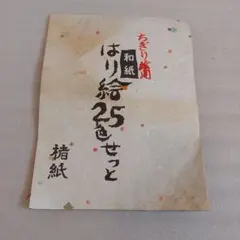 ちぎり絵用
和紙
はり絵
25色せっと
楮紙